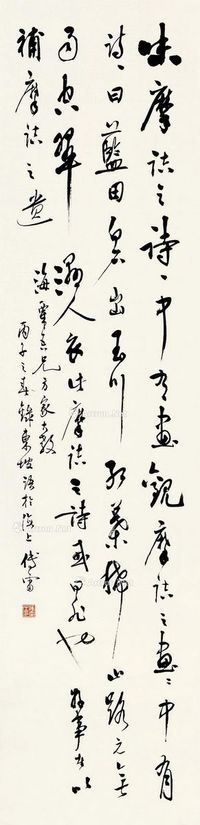 味摩詰之詩〻中有畫觀摩詰之畫〻中有
詩〻曰藍田白石出玉川紅葉稀山路元無
雨空翠濕人衣此摩詰之詩或曰非也好事者以
補摩詰之遺
海吾兄方家大教
丙子之春錄東坡語於海上